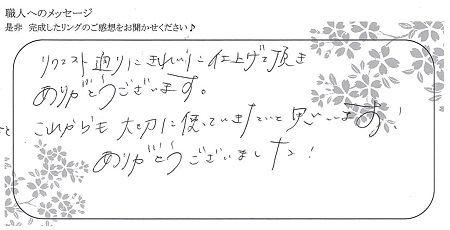 職人へのメッセージ
是非 完成したリングのご感想をお聞かせください♪
リクエスト通りにきれいに仕上げて頂き
ありがとうございます。
これからも大切に使っていきたいと思います!
ありがとうございました!